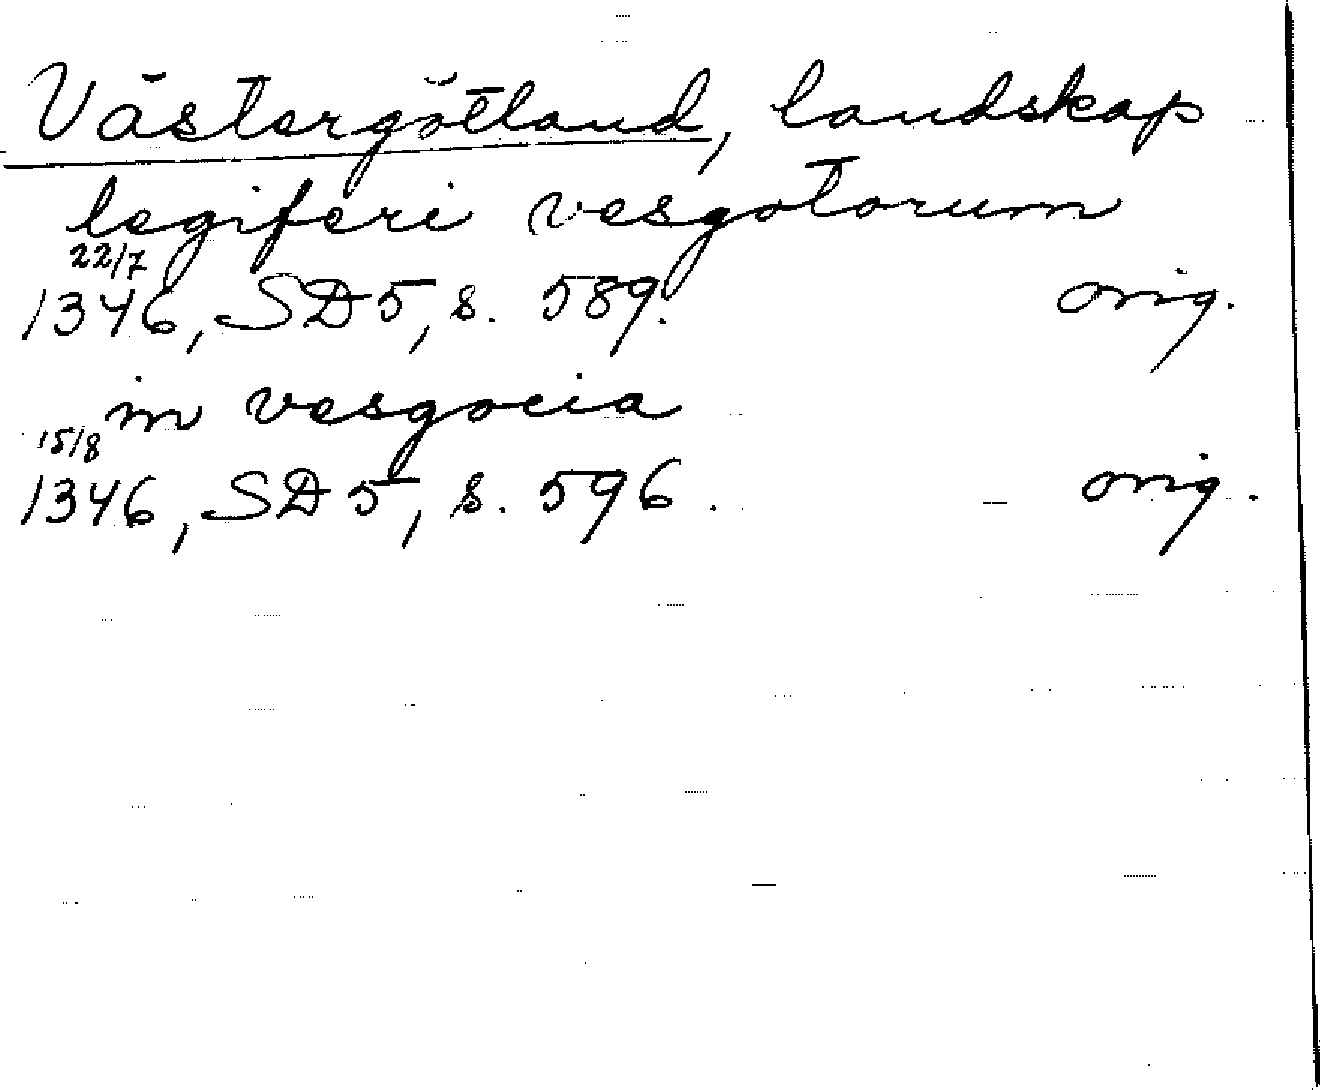 Västergötland, landskap
legiferi vesgotorum
22/7
1346, SD 5, s. 589. orig.
in vesgocia
15/8
1346, SD 5, s. 596. orig.